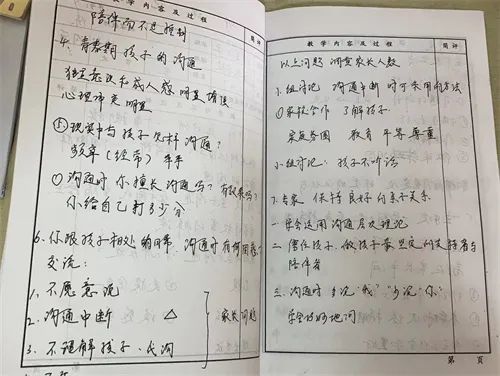 教学内容及过程
简评
陪伴而不是控制
4. 青春期孩子的沟通
独立意识和成人感明显增强
心理
明显
⑤. 现实中与孩子怎样沟通?
频率(经常)
① 沟通时你擅长沟通吗? 有效果吗?
你给自己打多少分
6. 你跟孩子相处的日常, 沟通时有何困惑?
交流:
1. 不愿意说
2. 沟通中断 △
家长问题
3. 不理解孩子、代沟
教学内容及过程
简评
以上问题 调查家长人数
小组讨论 沟通中断 时可采用的方法
②家校合作 了解孩子
家庭氛围 教育 平等尊重
小组讨论: 孩子不听话
7. 专家 保持良好的亲子关系
一. 学会运用沟通层次理论
二. 信任孩子, 做孩子最坚定的支持者与
陪伴者
三. 沟通时多说“我”少说“你”
学会
第 页